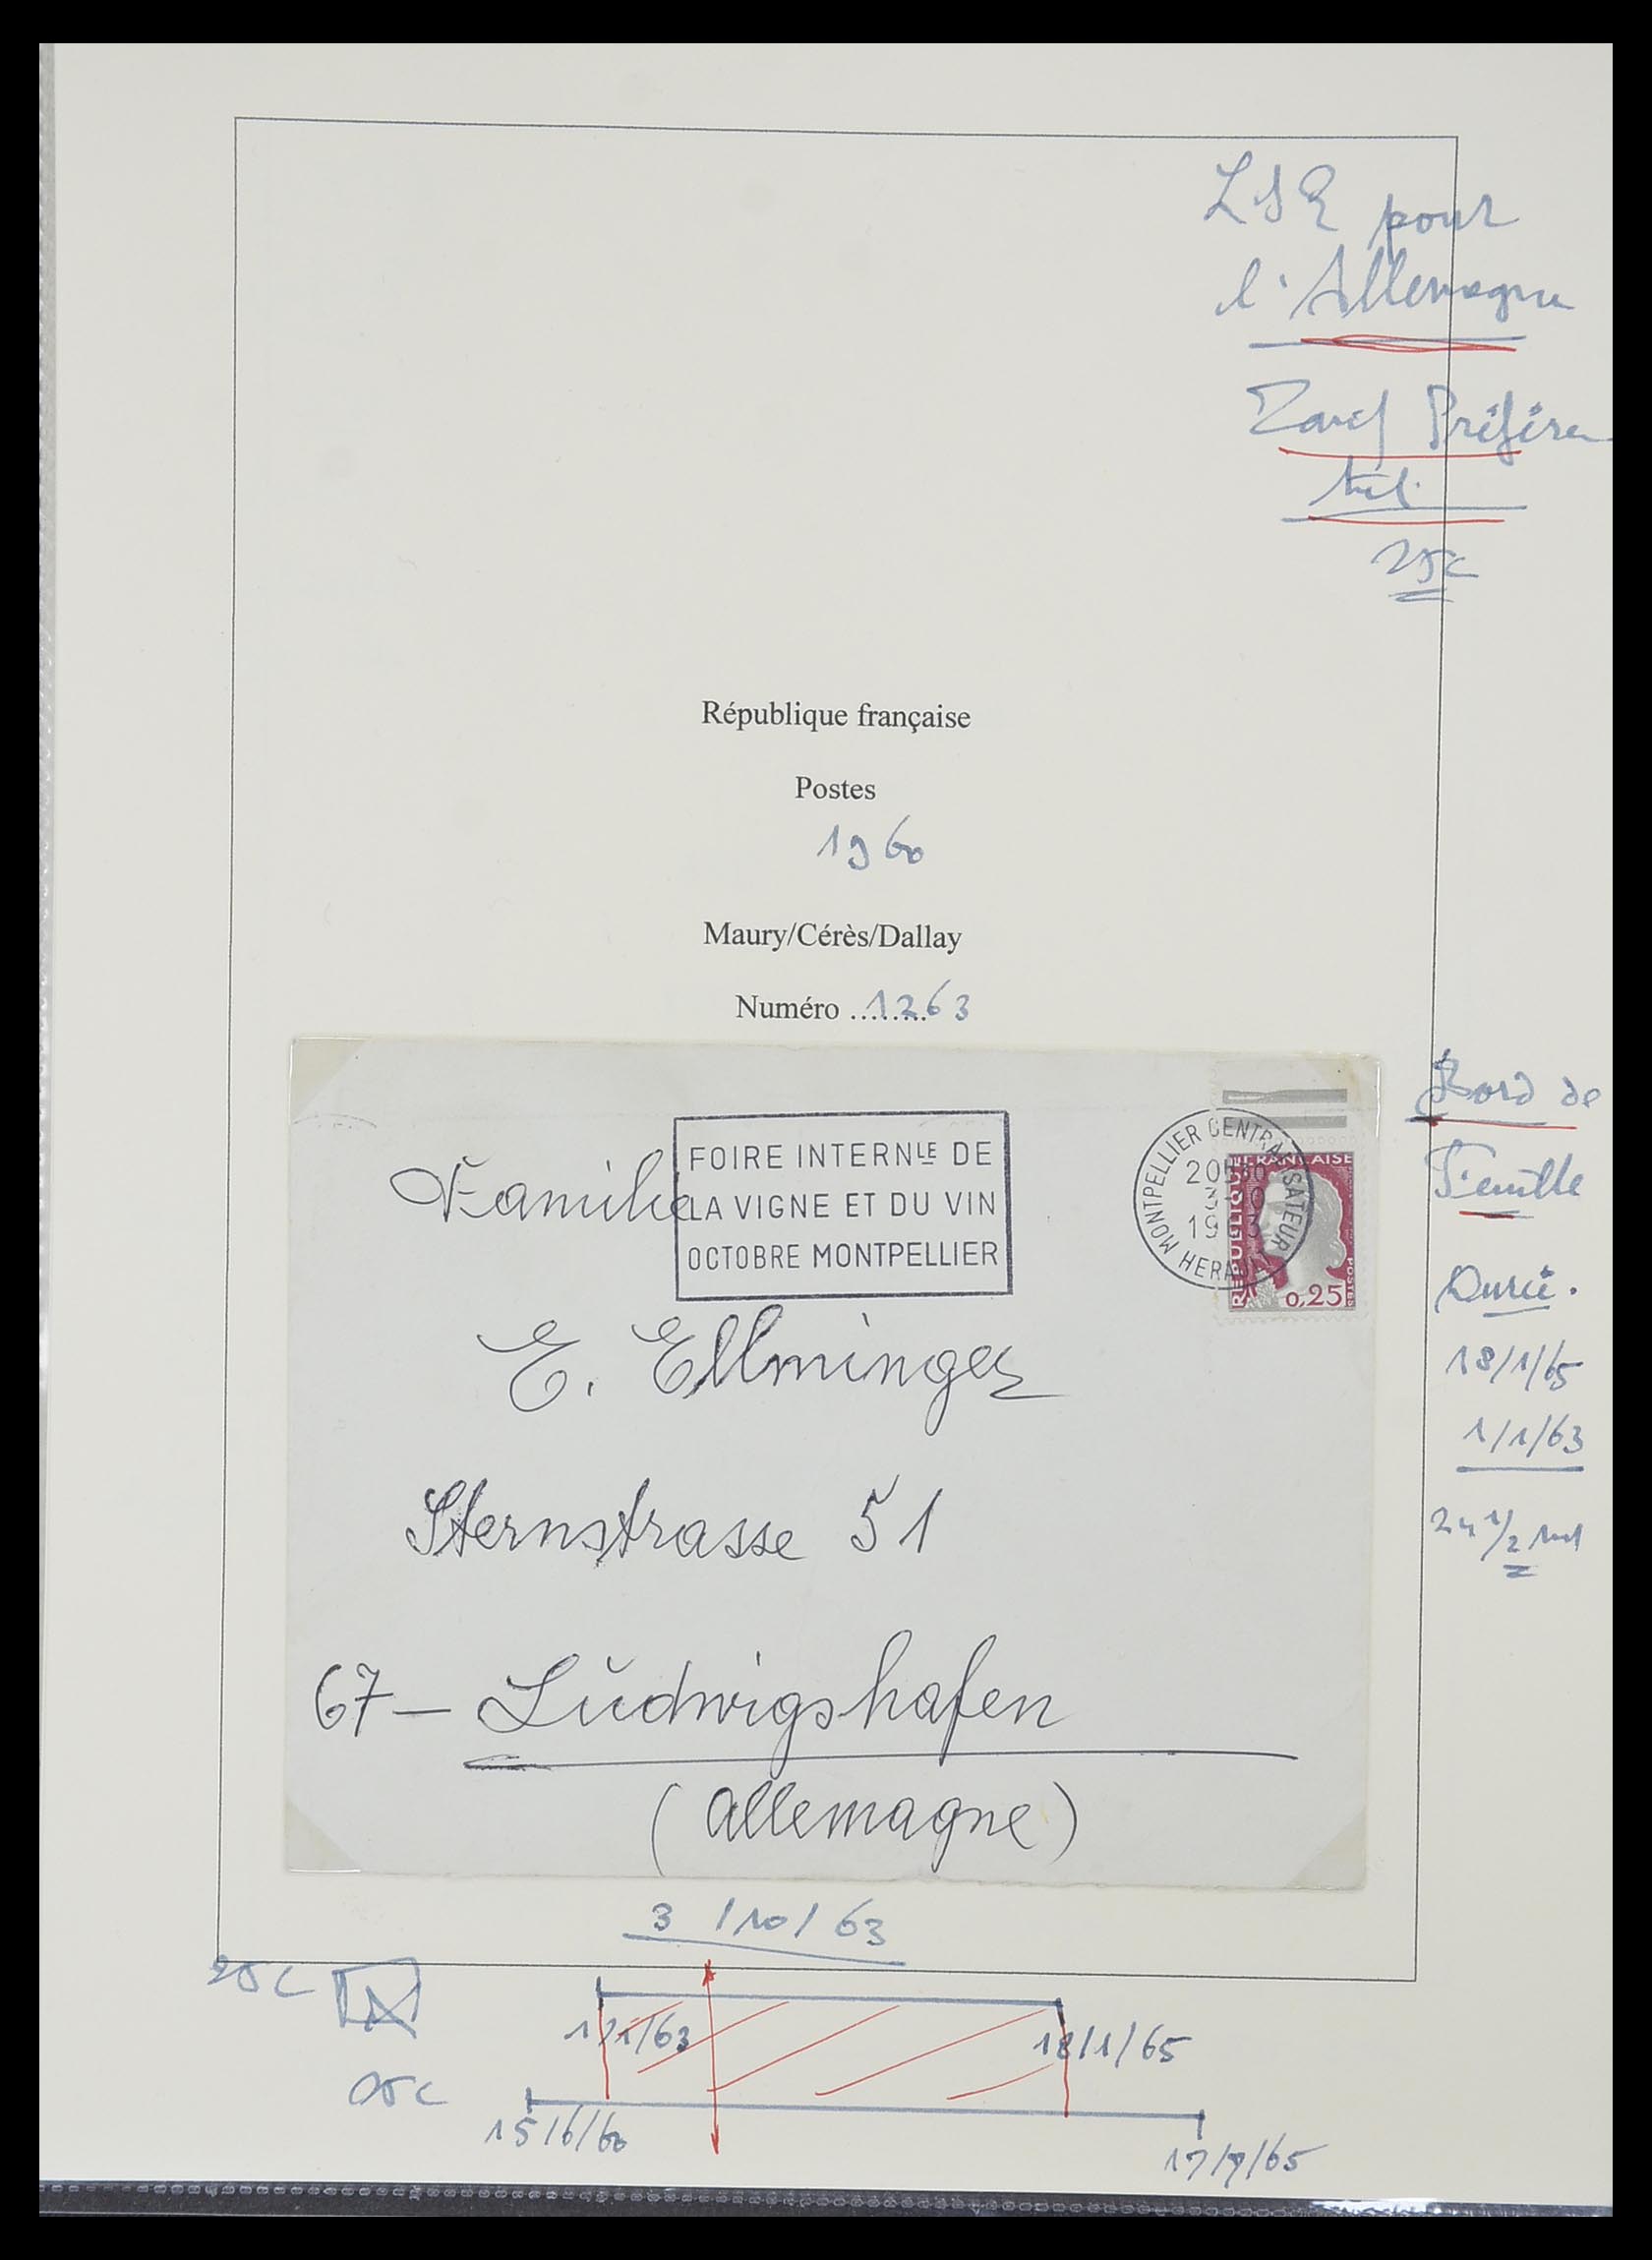 LSE pour
l'Allemagne
Tarif Préféren
tiel.
25c
République française
Postes
1960
Maury/Cérès/Dallay
Numéro ........1263
FOIRE INTERNLE DE
LA VIGNE ET DU VIN
OCTOBRE MONTPELLIER
MONTPELLIER CENTRALISATEUR
HERAULT
1963
REPUBLIQUE FRANÇAISE
POSTES
0,25
Familie
E. Ellminger
Sternstrasse 51
67 - Ludwigshafen
(Allemagne)
Bord de
Feuille
Durée.
18/1/65
1/1/63
24 1/2
3/10/63
25c
1/1/63
18/1/65
25c
15/6/60
17/7/65